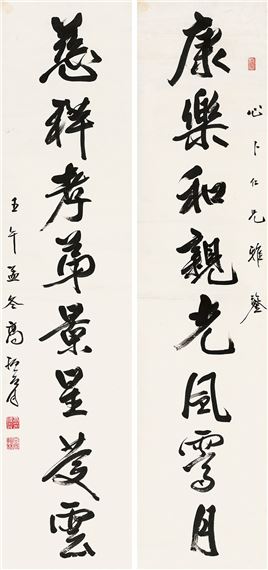 心卜仁兄雅鑒
康樂和親光風霽月
慈祥孝弟景星慶雲
壬午孟冬高振霄